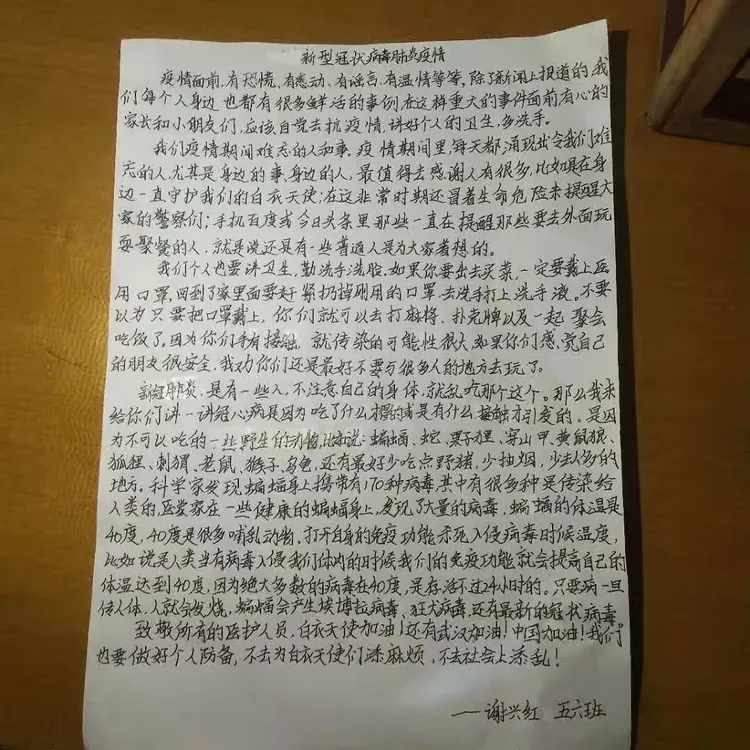 新型冠状病毒肺炎疫情
疫情面前,有恐慌,有感动、有谣言,有温情等等,除了新闻上报道的,我
们每个人身边也都有很多鲜活的事例,在这样重大的事件面前,有心的
家长和小朋友们,应该自觉去抗疫情,讲好个人的卫生,多洗手。
我们疫情期间难忘的人和事,疫情期间里每天都涌现出令我们难
忘的人,尤其是身边的事,身边的人、最值得去感谢人有很多,比如具在身
边一直守护我们的白衣天使;在这非常时期还冒着生命危险来提醒大
家的警察们;手机百度或今日头条里那些一直在提醒那些要去外面玩
耍聚餐的人,就是说还是有一些普通人是为大家着想的。
我们个人也要讲卫生,勤洗手洗脸,如果你要出去买菜,一定要戴上医
用口罩,回到了家里面要赶紧扔掉刚用的口罩去洗手打上洗手液。不要
以为只要把口罩戴上,你们就可以去打麻将、扑克牌以及一起聚会
吃饭了,因为你们手有接触,就传染的可能性很大,如果你们感觉自己
的朋友很安全,我劝你们还是最好不要与很多人的地方去玩了。
新冠肺炎,是有一些人,不注意自己的身体,就乱吃那个这个。那么我来
给你们讲一讲冠心病是因为吃了什么或是有什么接触才引发的。是因
为不可以吃的一些野生的动物,比如说:蝙蝠、蛇、果子狸、穿山甲、黄鼠狼、
狐狸、刺猬、老鼠、猴子、乌龟,还有最好少吃点野猪,少抽烟,少去人多的
地方。科学家发现蝙蝠身上携带有170种病毒,其中有很多种是传染给
人类的,医学家在一些健康的蝙蝠身上,发现了大量的病毒,蝙蝠的体温是
40度,40度是很多哺乳动物,打开自身的免疫功能杀死入侵病毒时候温度,
比如说是人类当有病毒入侵我们体内的时候我们的免疫功能就会提高自己的
体温达到40度,因为绝大多数的病毒在40度,是存活不过24小时的。只要病一旦
传人体,人就会发烧,蝙蝠会产生埃博拉病毒、狂犬病毒,还有最新的冠状病毒。
致敬所有的医护人员,白衣天使加油!还有武汉加油!中国加油!我们
也要做好个人防备,不去为白衣天使们添麻烦,不去社会上添乱!
——谢兴红 五六班